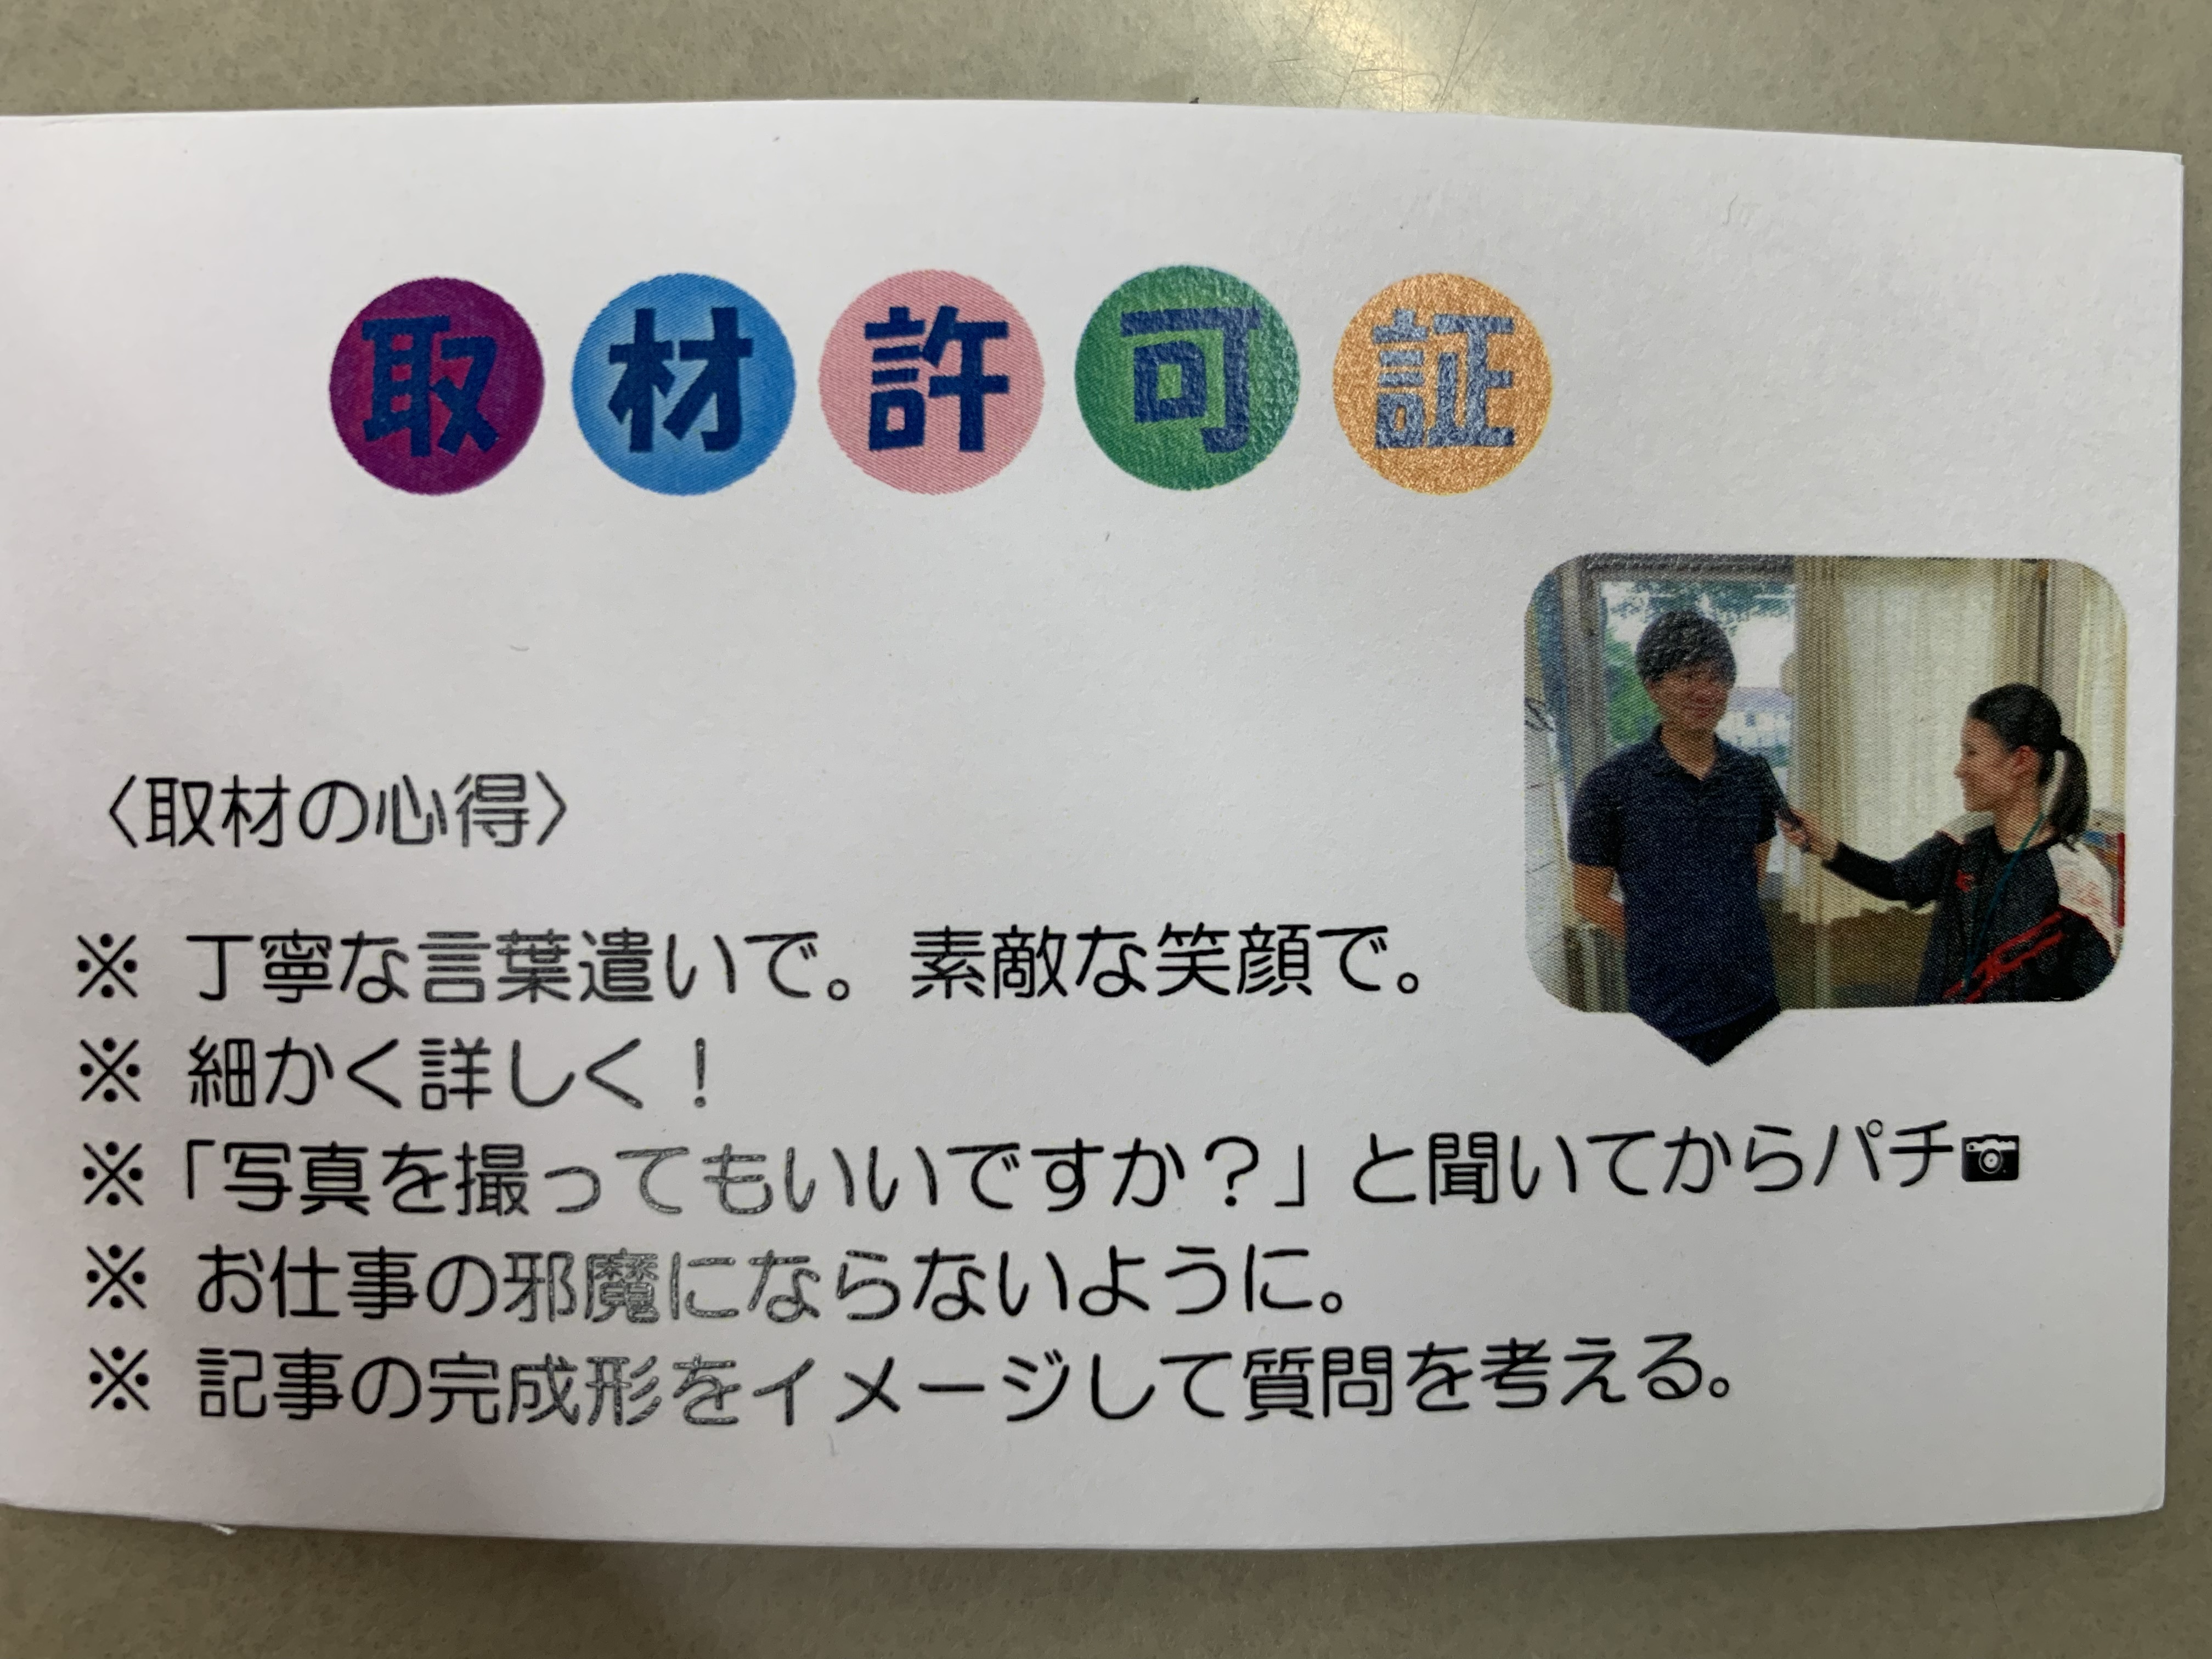 取材許可証
〈取材の心得〉
※ 丁寧な言葉遣いで。素敵な笑顔で。
※ 細かく詳しく！
※「写真を撮ってもいいですか？」と聞いてからパチ📷
※ お仕事の邪魔にならないように。
※ 記事の完成形をイメージして質問を考える。